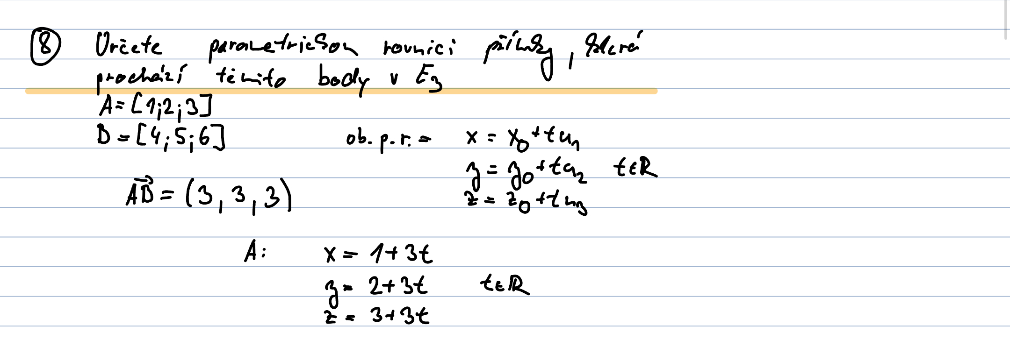 ⑧ Určete parametrickou rovnici přímky, která
prochází těmito body v E₃
A = [1;2;3]
B = [4;5;6]
ob. p. r. = x = x₀ + tu₁
y = y₀ + tu₂ t∈R
z = z₀ + tu₃
AB = (3, 3, 3)
A: x = 1 + 3t
y = 2 + 3t t∈R
z = 3 + 3t